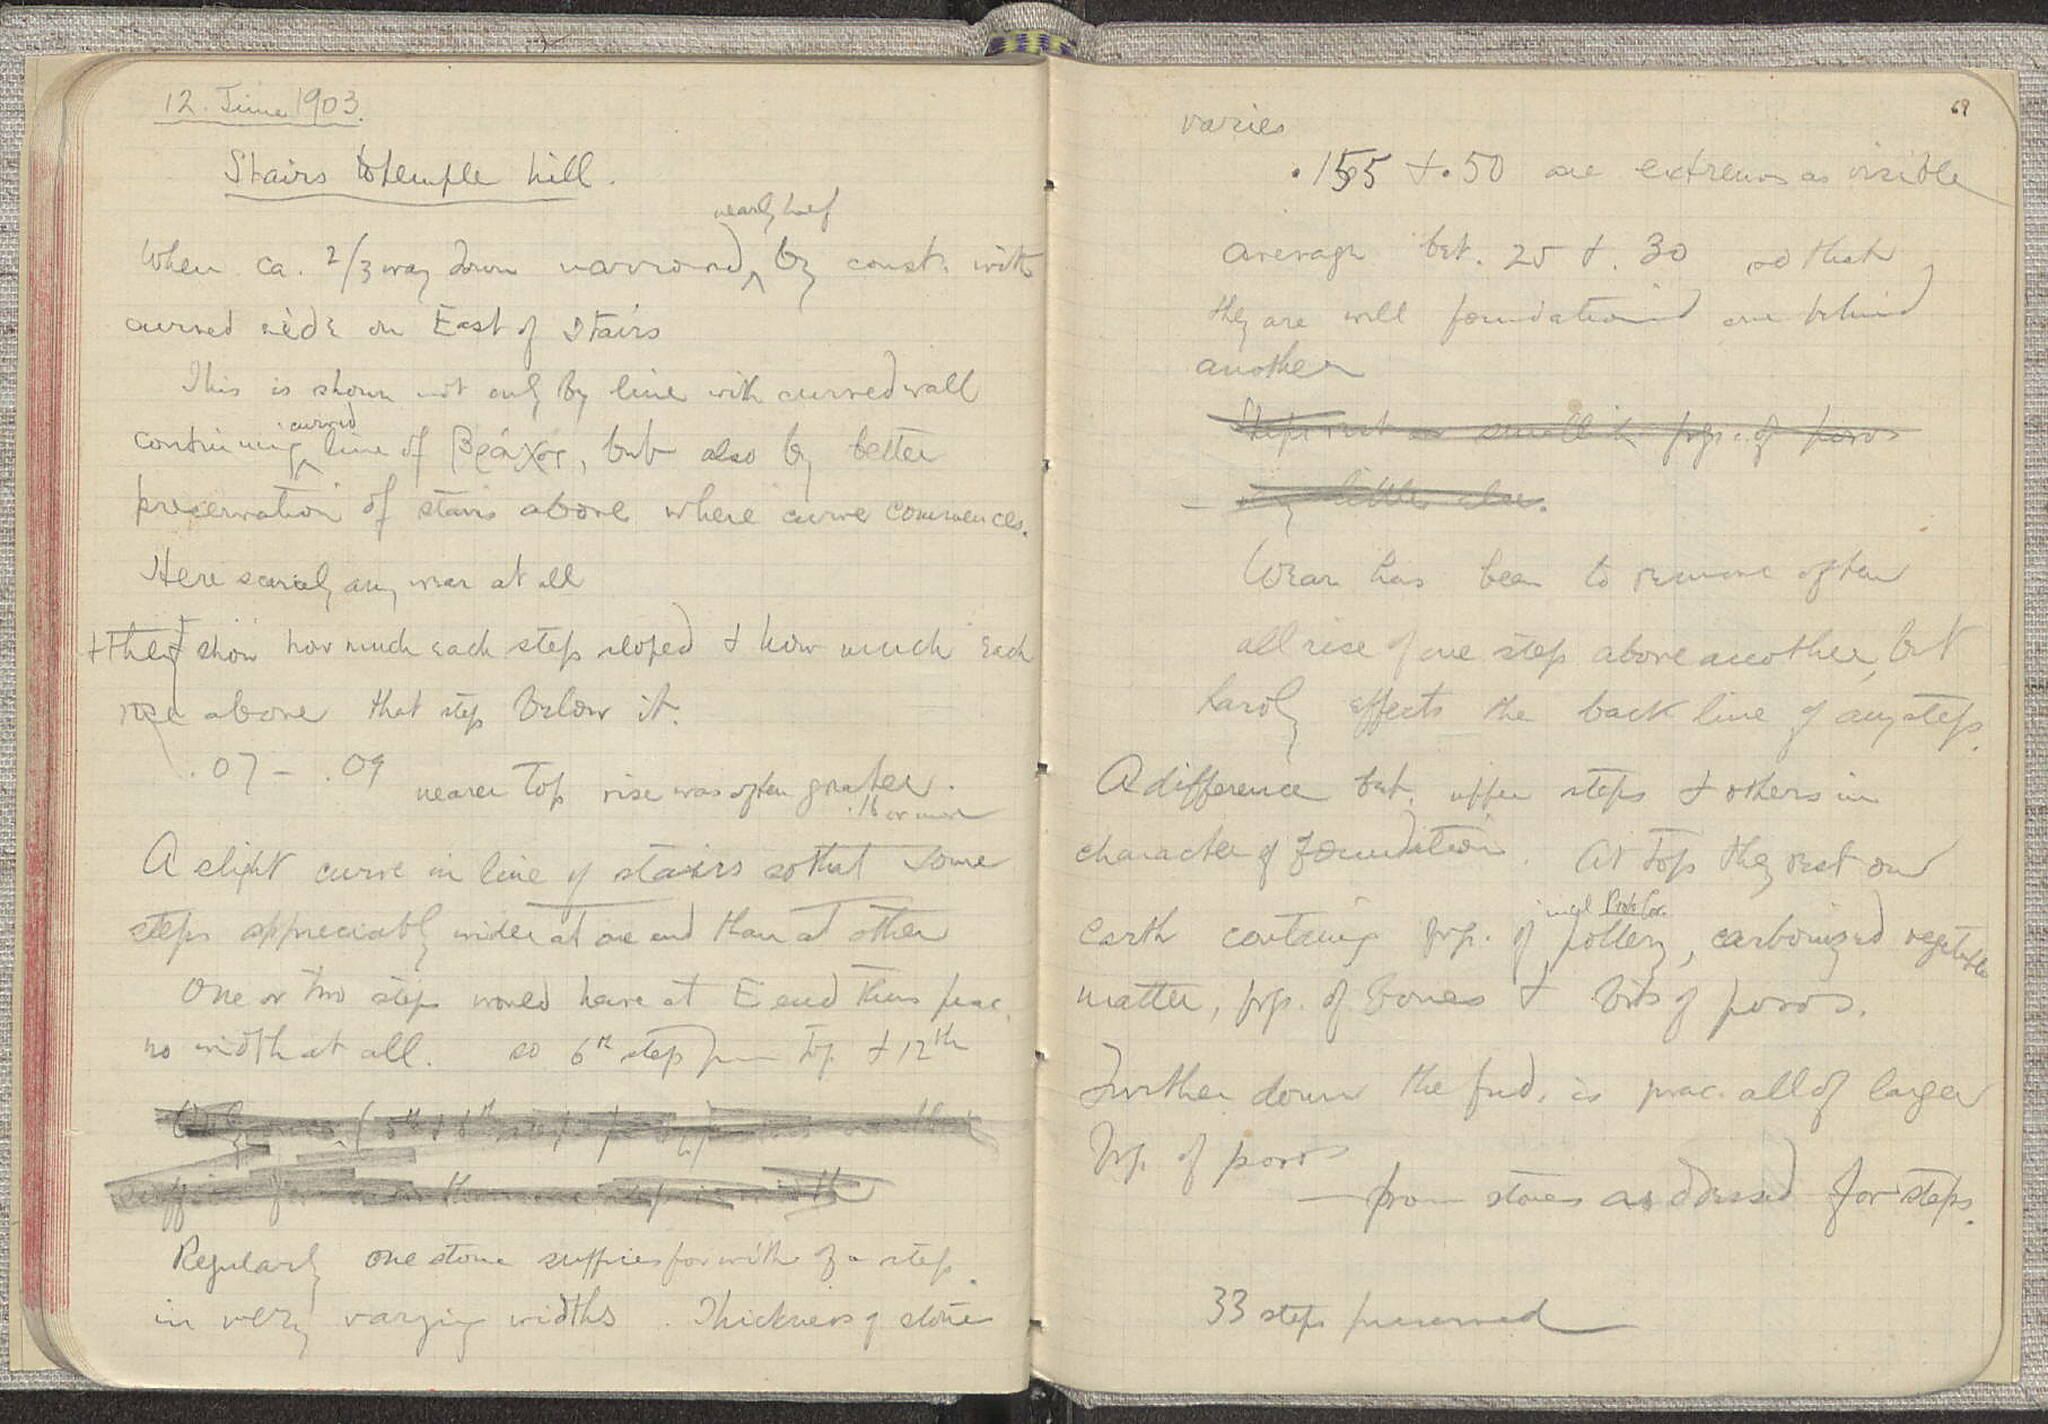 12. June 1903.
Stairs to temple hill.
nearly half
When ca. 2/3 way down narrowed by const. with
curved side on East of Stairs
This is shown not only by line with curved wall
curved
continuing line of βράχος, but also by better
preservation of stairs above where curve commences.
Here scarcely any wear at all
+ they show how much each step sloped + how much each
rose above that step below it.
.07 - .09 nearer top rise was often greater.
.16 or more
A slight curve in line of stairs so that some
steps appreciably wider at one end than at other
One or two steps would have at E end thus prac.
no width at all. so 6th step from top + 12th
Regularly one stone suffices for width of a step.
in very varying widths. Thickness of stone
69
varies
.155 + .50 are extremes as visible
average bet. 25 + .30 so that
they are well foundationed one behind
another
Steps rest on smallish frgs. of poros
very little else.
Wear has been to remove often
all rise of one step above another, but
hardly effects the back line of any step.
A difference bet. upper steps + others in
character of foundation. At top they rest on
incl Proto Cor.
earth containing frgs. of pottery, carbonized vegetable
matter, frgs. of bones + bits of poros.
Further down the fnd. is prac. all of larger
frgs. of poros
— from stones as dressed for steps.
33 steps preserved